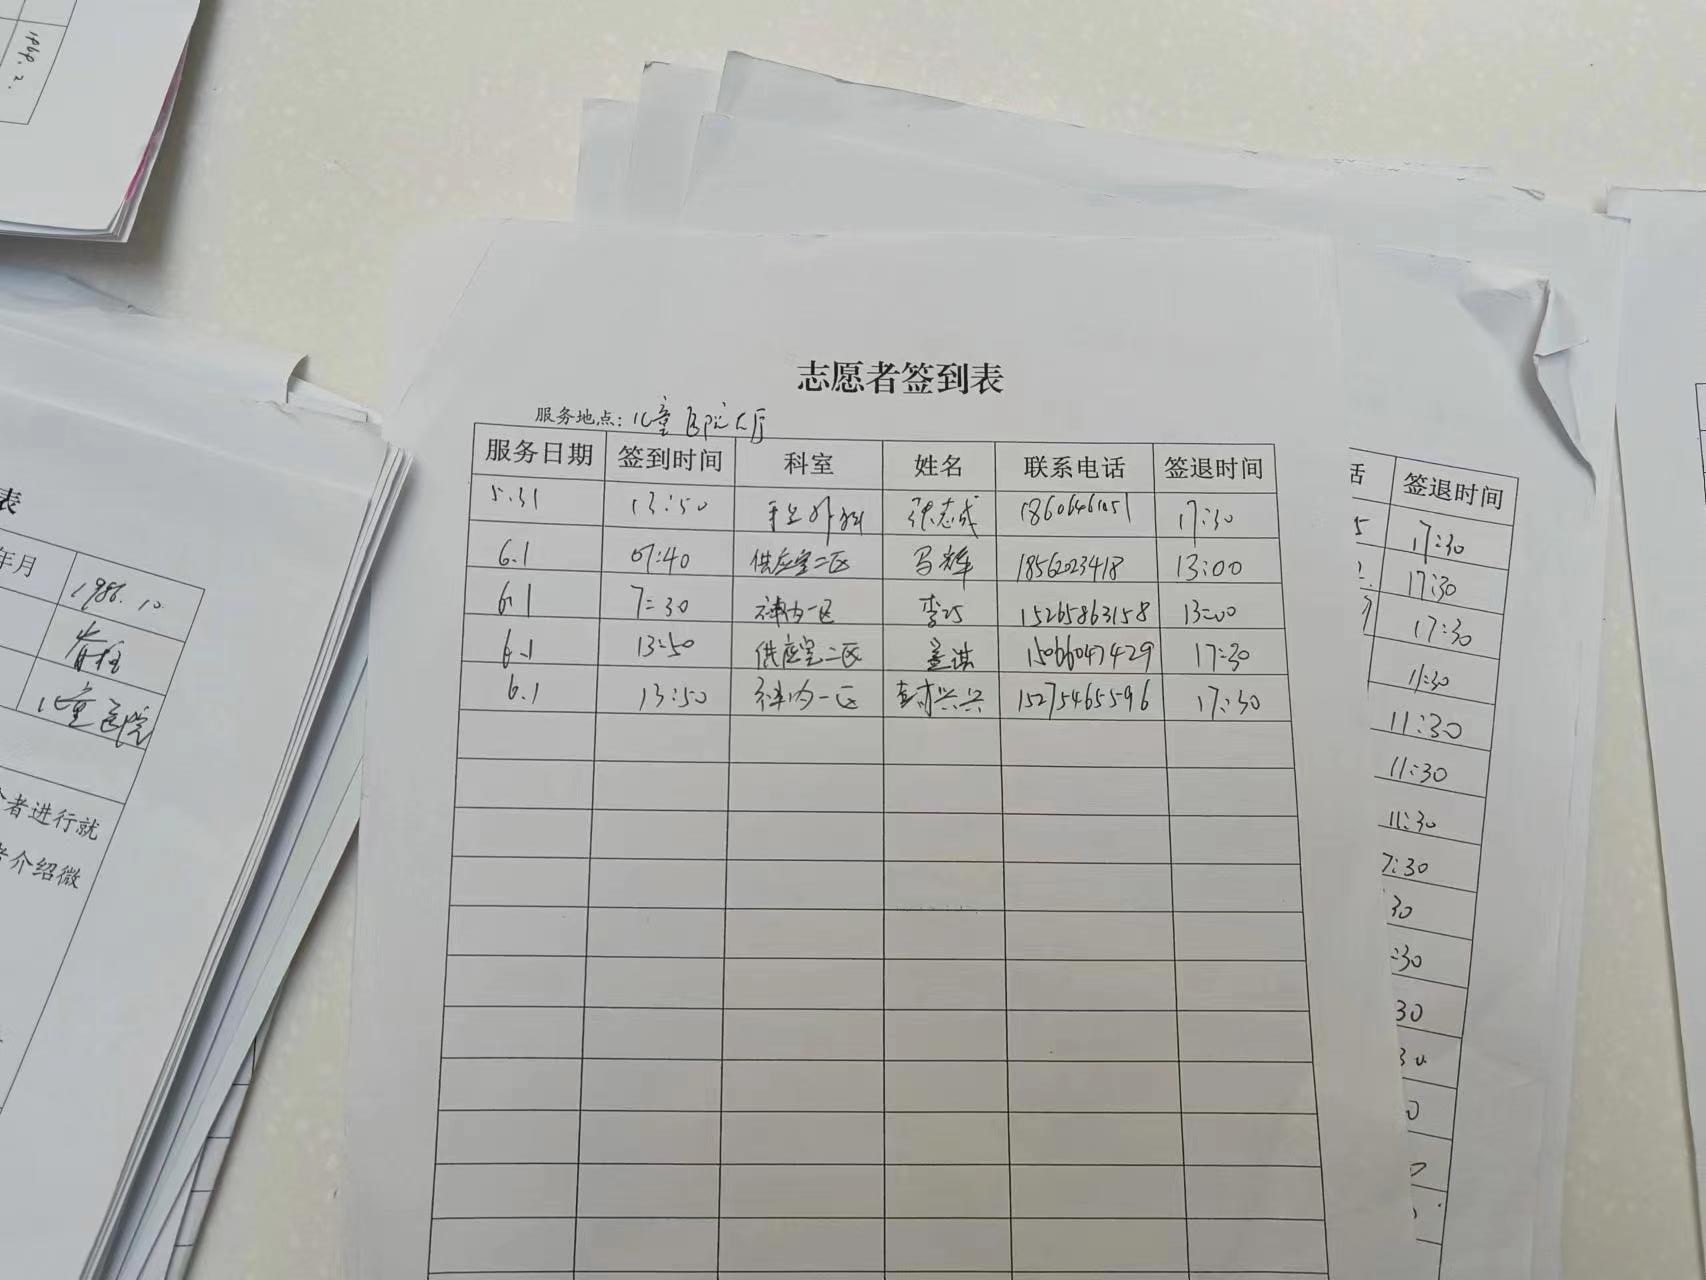 志愿者签到表
服务地点：儿童医院大厅
服务日期 签到时间 科室 姓名 联系电话 签退时间
5.31 13:50 手足外科 张志成 17:30
6.1 07:40 供应室二区 马辉 18562023418 13:00
6.1 7:30 神内一区 李巧 15265863158 13:00
6.1 13:50 供应室二区 15066047429 17:30
6.1 13:50 神内一区 15275465596 17:30
话 签退时间
5 17:30
17:30
17:30
11:30
11:30
11:30
11:30
7:30
30
:30
30
30
0
表
年月 1986.10
脊柱
儿童医院
者进行就
者介绍微